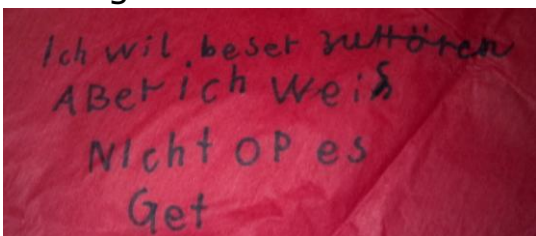 Ich wil beser zuHören
ABer ich weiß
NIcht op es
Get